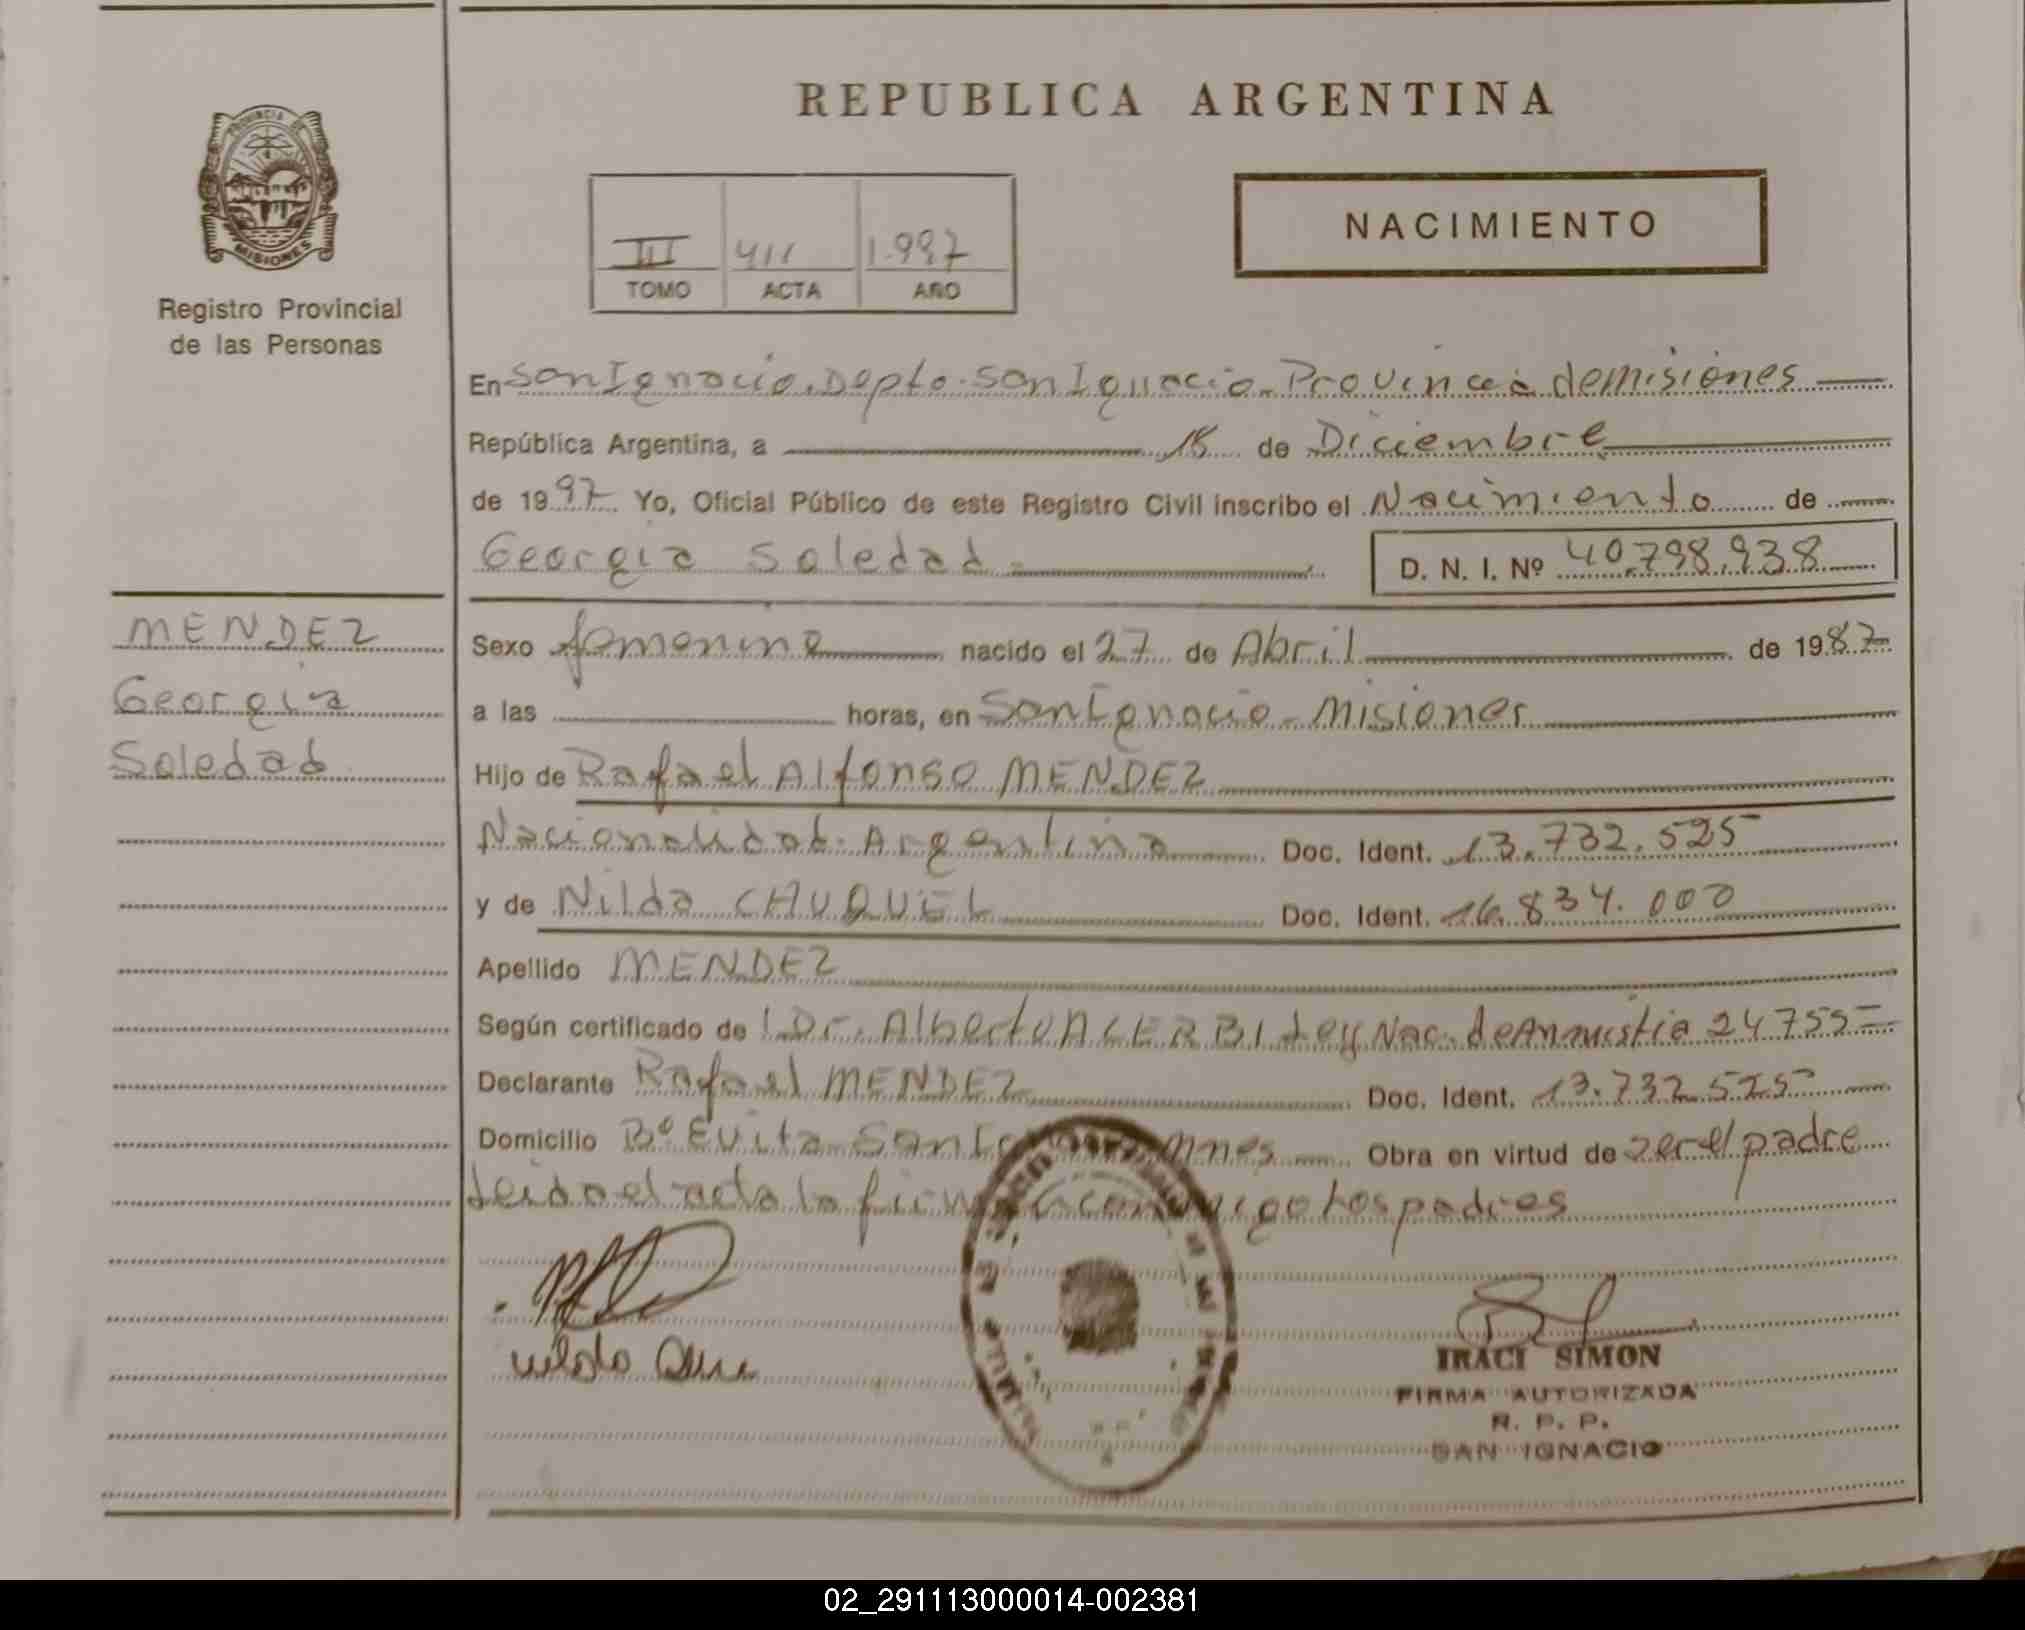 REPUBLICA ARGENTINA
PROVINCIA DE
MISIONES
Registro Provincial
de las Personas
III 411 1.997
TOMO ACTA AÑO
NACIMIENTO
En San Ignacio. Depto. San Ignacio. Provincia de misiones
República Argentina, a 18 de Diciembre
de 1997 Yo, Oficial Público de este Registro Civil inscribo el Nacimiento de
Georgia Soledad D. N. I. Nº 40.798.938
MENDEZ
Georgia
Soledad
Sexo femenino nacido el 27 de Abril de 1987
a las horas, en San Ignacio - Misiones
Hijo de Rafael Alfonso MENDEZ
Nacionalidad. Argentina Doc. Ident. 13.732.525
y de Nilda CHUQUEL Doc. Ident. 16.834.000
Apellido MENDEZ
Según certificado de Dr. Alberto ACERBI Ley Nac. de Annistia 24755
Declarante Rafael MENDEZ Doc. Ident. 13.732.525
Domicilio Bº Evita San Mnes Obra en virtud de ser el padre
Leida el acta la conmigo los padres
IRACI SIMON
FIRMA AUTORIZADA
R. P. P.
SAN IGNACIO
02_291113000014-002381